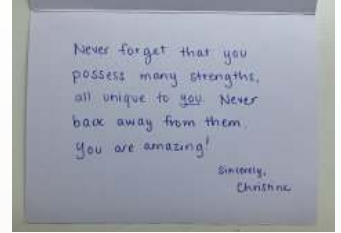 Never forget that you
possess many strengths,
all unique to you. Never
back away from them.
You are amazing!
Sincerely,
Christine